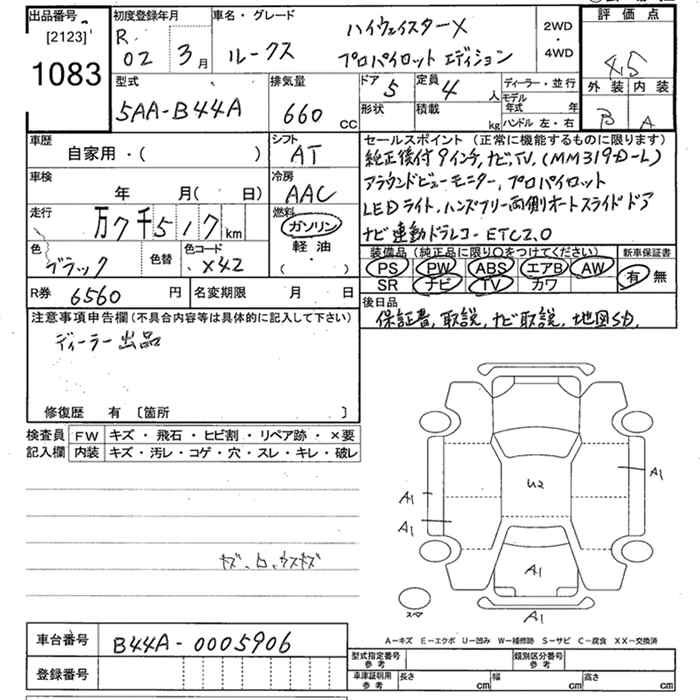 出品番号
[2123]
1083
初度登録年月
R 02 年 3月
車名・グレード
ルークス
ハイウェイスターX
プロパイロット エディション
2WD
・
4WD
評価点
4.5
外装 内装
B A
型式
5AA-B44A
排気量
660 CC
ドア 5
定員 4 人
形状
積載 kg
ディーラー・並行
モデル年式 年
ハンドル 左・右
車歴
自家用・( )
シフト
AT
車検
年 月( 日)
冷房
AAC
走行
万7千517km
燃料
ガソリン
軽油・
( )
色
ブラック
色替
色コード
X42
セールスポイント (正常に機能するものに限ります)
純正後付9インチ,ナビTV,(MM319D-L)
アラウンドビューモニター,プロパイロット
LEDライト,ハンズフリー両側オートスライドドア
ナビ連動ドラレコ-ETC2.0
装備品 (純正品に限り○をつけてください)
PS PW ABS エアB AW
SR ナビ TV カワ
新車保証書
有 無
R券 6560 円
名変期限 月 日
後日品
保証書,取説,ナビ取説,地図SD,
注意事項申告欄(不具合内容等は具体的に記入して下さい)
ディーラー出品
修復歴 有 〔箇所 〕
検査員記入欄
FW キズ・飛石・ヒビ割・リペア跡・×要
内装 キズ・汚レ・コゲ・穴・スレ・キレ・破レ
U2
A1
A1
A1
A1
A1
スペア
A-キズ E-エクボ U-凹み W-補修跡 S-サビ C-腐食 XX-交換済
車台番号 B44A-0005906
登録番号
型式指定番号 参考
類別区分番号 参考
車庫証明用 参考
長さ cm 幅 cm 高さ cm